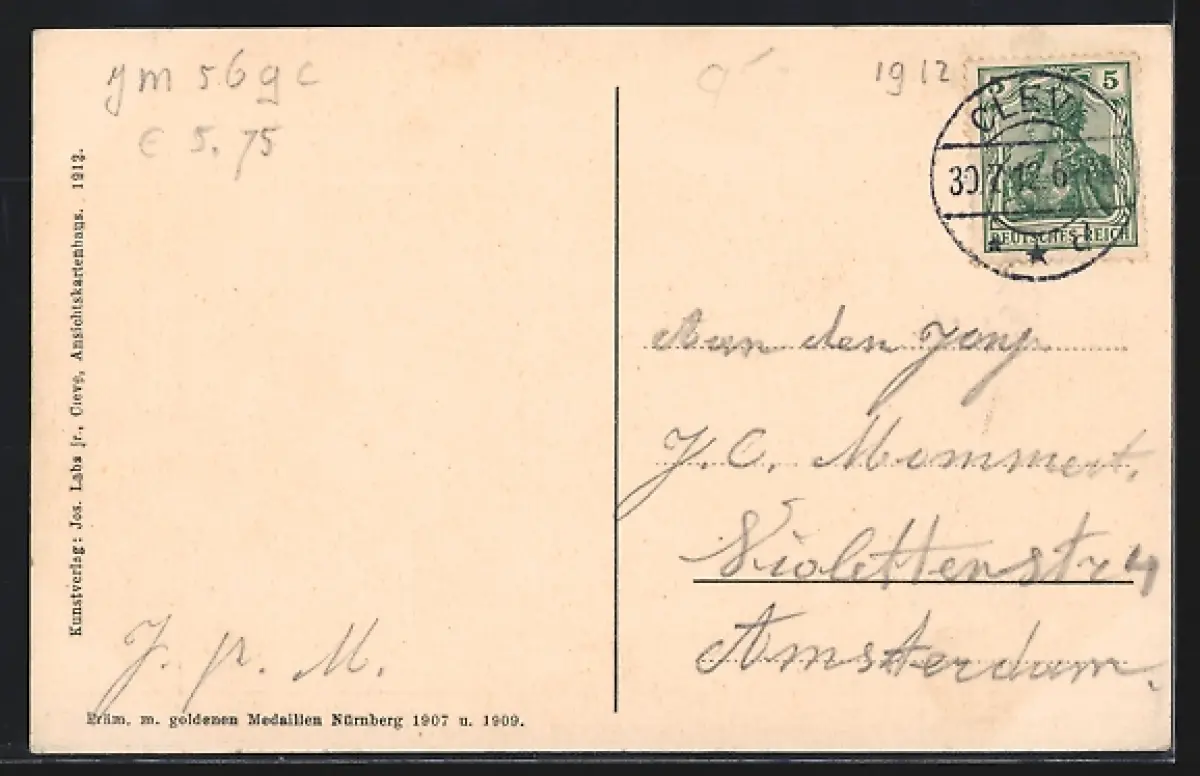 ym 569 c
€ 5,75
1912
5
CLEVE
30.7.12.6-
d
DEUTSCHES REICH
Aan den Jong
J. C. Mommert.
Violettenstr 4
Amsterdam.
J. M.
Kunstverlag: Jos. Labs jr., Cleve, Ansichtskartenhaus. 1912.
Präm. m. goldenen Medaillen Nürnberg 1907 u. 1909.